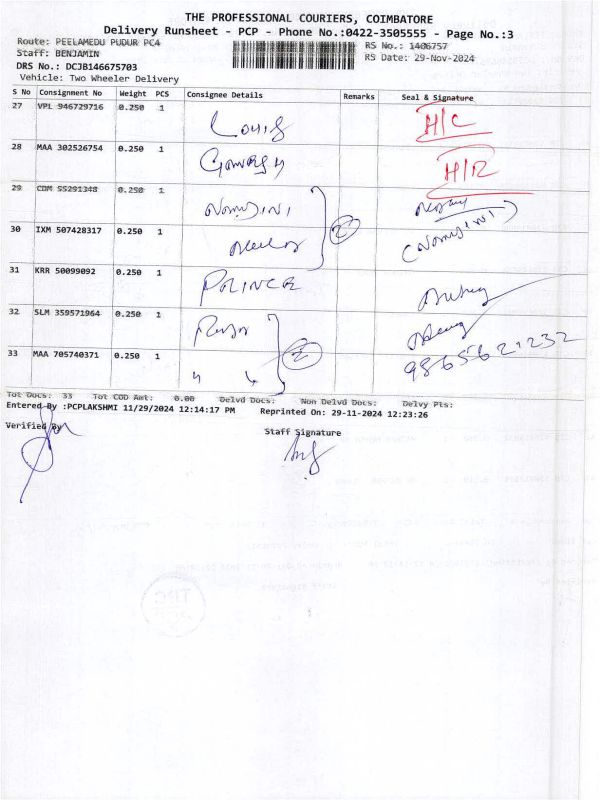 THE PROFESSIONAL COURIERS, COIMBATORE
Delivery Runsheet - PCP - Phone No.:0422-3505555 - Page No.:3
Route: PEELAMEDU PUDUR PC4 RS No.: 1406757
Staff: BENJAMIN RS Date: 29-Nov-2024
DRS No.: DCJB146675703
Vehicle: Two Wheeler Delivery
S No Consignment No Weight PCS Consignee Details Remarks Seal & Signature
27 VPL 946729716 0.250 1 Louis H/C
28 MAA 302526754 0.250 1 H/R
29 CDM 55291348 0.250 1
30 IXM 507428317 0.250 1
31 KRR 50099092 0.250 1 PRINCE
32 SLM 359571964 0.250 1
33 MAA 705740371 0.250 1 " 2 9865621232
Tot Docs: 33 Tot COD Amt: 0.00 Delvd Docs: Non Delvd Docs: Delvy Pts:
Entered By :PCPLAKSHMI 11/29/2024 12:14:17 PM Reprinted On: 29-11-2024 12:23:26
Verified By Staff Signature